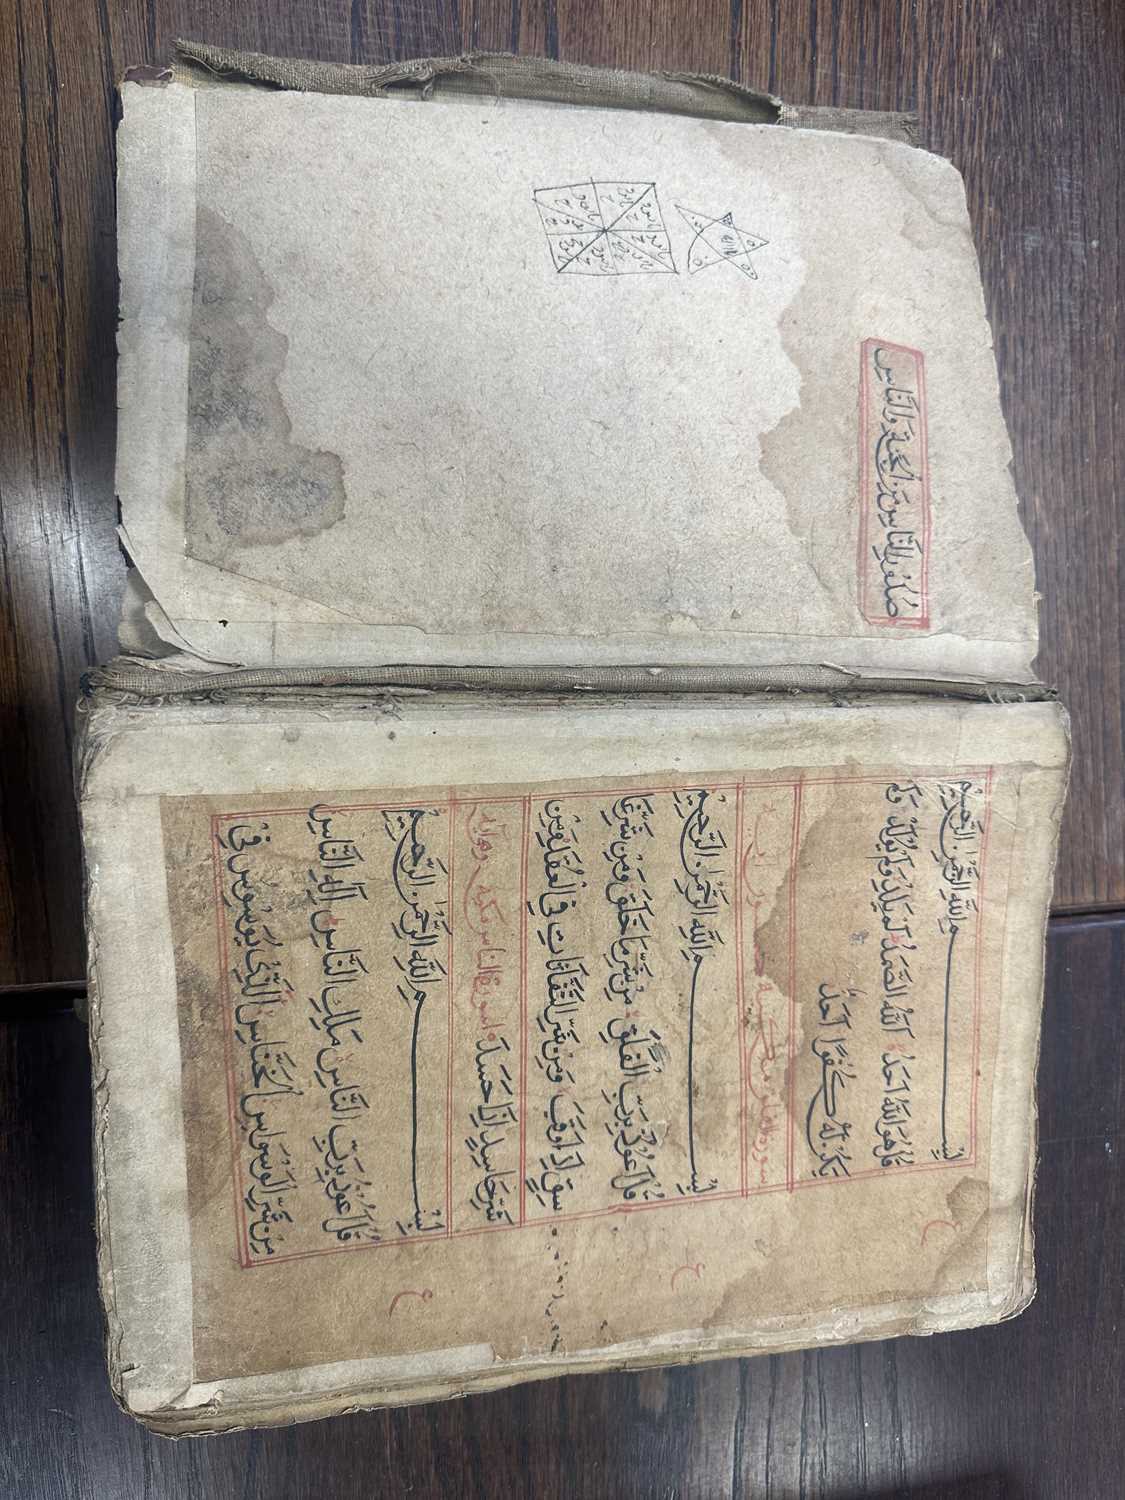 بِسْمِ اللّٰهِ الرَّحْمٰنِ الرَّحِيْمِ
قُلْ هُوَ اللّٰهُ اَحَدٌ اَللّٰهُ الصَّمَدُ لَمْ يَلِدْ وَلَمْ يُوْلَدْ وَلَمْ
يَكُنْ لَّهُ كُفُوًا اَحَدٌ
سورة الفلق
بِسْمِ اللّٰهِ الرَّحْمٰنِ الرَّحِيْمِ
قُلْ اَعُوْذُ بِرَبِّ الْفَلَقِ مِنْ شَرِّ مَا خَلَقَ وَمِنْ شَرِّ غَا
سِقٍ اِذَا وَقَبَ وَمِنْ شَرِّ النَّفّٰثٰتِ فِي الْعُقَدِ وَمِنْ
شَرِّ حَاسِدٍ اِذَا حَسَدَ الناس مكية وهي
بِسْمِ اللّٰهِ الرَّحْمٰنِ الرَّحِيْمِ
قُلْ اَعُوْذُ بِرَبِّ النَّاسِ مَلِكِ النَّاسِ اِلٰهِ النَّاسِ
مِنْ شَرِّ الْوَسْوَاسِ الْخَنَّاسِ الَّذِيْ يُوَسْوِسُ فِيْ
ع
ع
ع
صُدُوْرِ النَّاسِ مِنَ الْجِنَّةِ وَالنَّاسِ